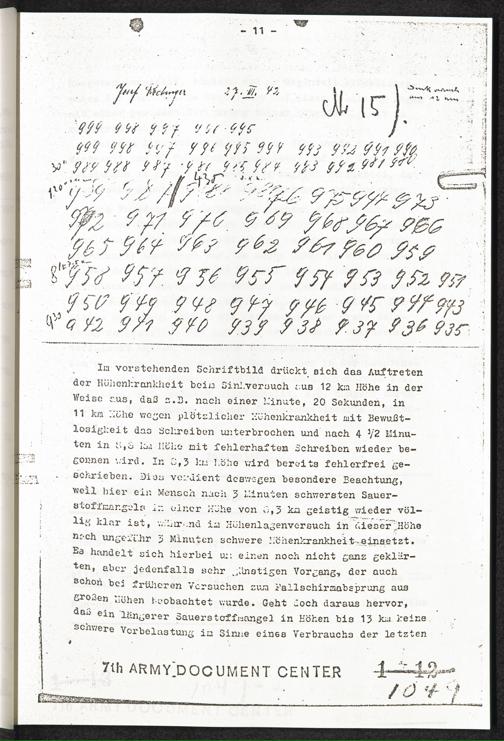 - 11 -
27. VI. 42
Nr 15).
999 998 997 996 995
30"
1'20"
435
972 971 970 969 968 967 966
965 964 963 962 961 960 959
958 957 956 955 954 953 952 951
950 949 948 947 946 945 944 943
942 941 940 939 938 937 936 935
Im vorstehenden Schriftbild drückt sich das Auftreten
der Höhenkrankheit beim Sinkversuch aus 12 km Höhe in der
Weise aus, daß z.B. nach einer Minute, 20 Sekunden, in
11 km Höhe wegen plötzlicher Höhenkrankheit mit Bewußt-
losigkeit das Schreiben unterbrochen und nach 4 1/2 Minu-
ten in km Höhe mit fehlerhaften Schreiben wieder be-
gonnen wird. In 8,3 km Höhe wird bereits fehlerfrei ge-
schrieben. Dies verdient deswegen besondere Beachtung,
weil hier ein Mensch nach 3 Minuten schwersten Sauer-
stoffmangels in einer Höhe von 8,3 km geistig wieder völ-
lig klar ist, während im Höhenlagenversuch in dieser Höhe
nach ungefähr 3 Minuten schwere Höhenkrankheit einsetzt.
Es handelt sich hierbei um einen noch nicht ganz geklär-
ten, aber jedenfalls sehr günstigen Vorgang, der auch
schon bei früheren Versuchen zum Fallschirmabsprung aus
großen Höhen beobachtet wurde. Geht doch daraus hervor,
daß ein längerer Sauerstoffmangel in Höhen bis 13 km keine
schwere Vorbelastung im Sinne eines Verbrauchs der letzten
7th ARMY DOCUMENT CENTER
1 - 12
1049